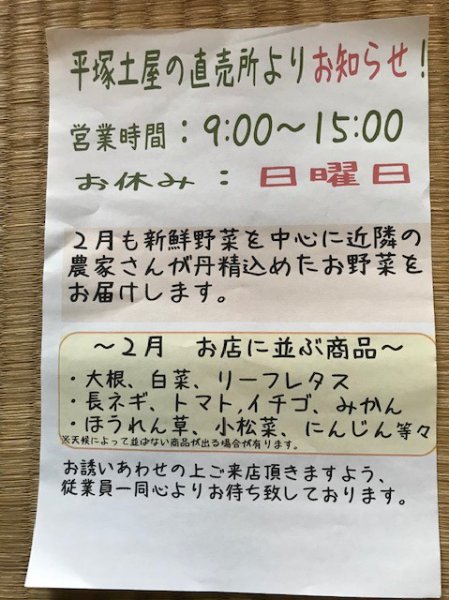 平塚土屋の直売所よりお知らせ!
営業時間：9:00～15:00
お休み：日曜日
２月も新鮮野菜を中心に近隣の
農家さんが丹精込めたお野菜を
お届けします。
～２月　お店に並ぶ商品～
・大根、白菜、リーフレタス
・長ネギ、トマト,イチゴ、みかん
・ほうれん草、小松菜、にんじん等々
※天候によって並ばない商品が出る場合が有ります。
お誘いあわせの上ご来店頂きますよう、
従業員一同心よりお待ち致しております。